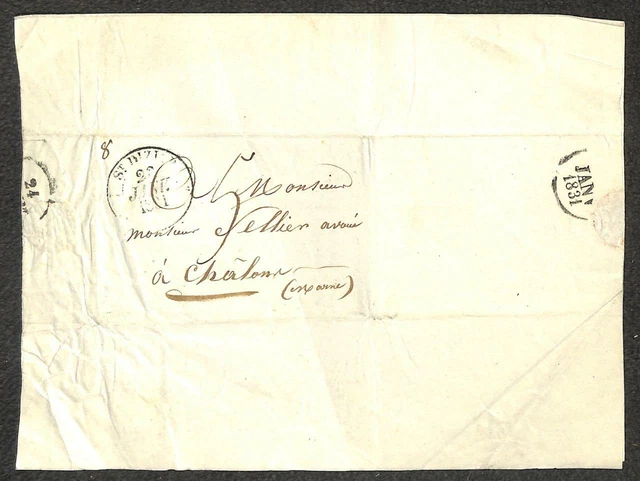 8
ST DIZIER
Monsieur
monsieur Sellier avoué
à Châlons
(Marne)
24
JAN
1831